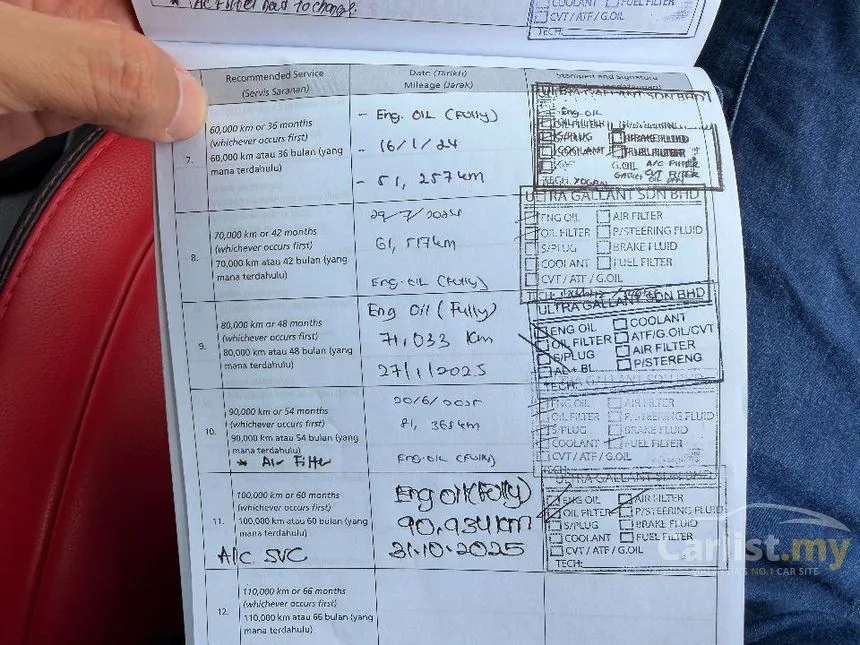 * A/C Filter had to change
COOLANT FUEL FILTER
CVT / ATF / G.OIL
TECH:
Recommended Service
(Servis Saranan)
Date (Tarikh)
Mileage (Jarak)
Stamped and Signature
7.
60,000 km or 36 months
(whichever occurs first)
60,000 km atau 36 bulan (yang
mana terdahulu)
- Eng. OIL (Fully)
- 16/1/24
- 51, 257km
ULTRA GALLANT SDN BHD
ENG OIL
OIL FILTER
S/PLUG BRAKE FLUID
COOLANT FUEL FILTER
G.OIL A/C FILTER
CVT FILTER
GASKET OIL PAN
TECH:
8.
70,000 km or 42 months
(whichever occurs first)
70,000 km atau 42 bulan (yang
mana terdahulu)
29/7/2024
61, 517km
Eng. OIL (Fully)
ULTRA GALLANT SDN BHD
ENG OIL AIR FILTER
OIL FILTER P/STEERING FLUID
S/PLUG BRAKE FLUID
COOLANT FUEL FILTER
CVT / ATF / G.OIL
TECH:
9.
80,000 km or 48 months
(whichever occurs first)
80,000 km atau 48 bulan (yang
mana terdahulu)
Eng Oil (Fully)
71,033 km
27/1/2025
ULTRA GALLANT SDN BHD
ENG OIL COOLANT
OIL FILTER ATF/G.OIL/CVT
S/PLUG AIR FILTER
AL+BL P/STERENG
TECH:
10.
90,000 km or 54 months
(whichever occurs first)
90,000 km atau 54 bulan (yang
mana terdahulu)
* Air Filter
20/6/2025
81, 365km
ENG. OIL (Fully)
ENG OIL AIR FILTER
OIL FILTER P/STEERING FLUID
S/PLUG BRAKE FLUID
COOLANT FUEL FILTER
CVT / ATF / G.OIL
TECH:
11.
100,000 km or 60 months
(whichever occurs first)
100,000 km atau 60 bulan (yang
mana terdahulu)
A/C SVC
Eng Oil (Fully)
90,934km
31.10.2025
ULTRA GALLANT SDN BHD
ENG OIL AIR FILTER
OIL FILTER P/STEERING FLUID
S/PLUG BRAKE FLUID
COOLANT FUEL FILTER
CVT / ATF / G.OIL
TECH:
12.
110,000 km or 66 months
(whichever occurs first)
110,000 km atau 66 bulan (yang
mana terdahulu)
Carlist.my
MALAYSIA'S NO.1 CAR SITE